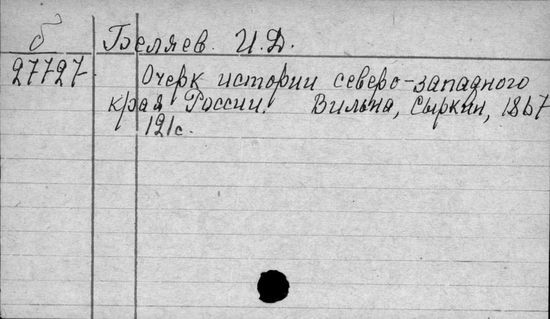 б Беляев. И.Д.
27727 Очерк истории северо-западного
края России. Вильна, Сыркин, 1867
121с.